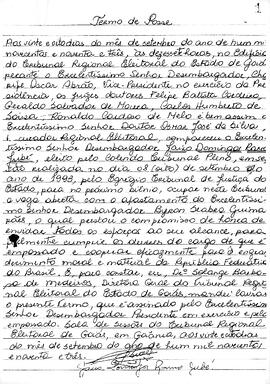 1
Termo de Posse
Aos vinte e oito dias do mês de setembro do ano de hum mil
novecentos e noventa e três, às dezesseis horas, no Edifício
do Tribunal Regional Eleitoral do Estado de Goiás,
perante o Excelentíssimo Senhor Desembargador,
Abrão, Vice-Presidente no exercício da Presi-
dência, os Juízes Doutores Felipe Batista Cordeiro,
Geraldo Salvador de Moura, Carlos Humberto de
Sousa, Ronaldo de Melo e bem assim o
Excelentíssimo Senhor Doutor José da Silva,
Procurador Regional Eleitoral, compareceu o Excelen-
tíssimo Senhor Desembargador Jairo Domingos Ramos
Jubé, eleito pelo Colendo Tribunal Pleno, em ses-
são realizada no dia 08 (oito) de setembro do
ano de 1993, pelo Egrégio Tribunal de Justiça do
Estado, para no próximo biênio, ocupar neste Tribunal
a vaga aberta com o afastamento do Excelentíssi-
mo Senhor Desembargador Byron Seabra Guima-
rães, o qual prestou o compromisso de
envidar todos os esforços ao seu alcance, para
fielmente cumprir os deveres do cargo de que é
empossado e cooperar eficazmente para o engran-
decimento moral e material da República Federativa
do Brasil. E, para constar, eu, Solange Barbo-
sa de Medeiros, Diretora Geral do Tribunal Regio-
nal Eleitoral do Estado de Goiás, mandei lavrar
o presente termo, que é assinado pelo Excelentíssimo
Senhor Desembargador Presidente em exercício e pelo
empossado. Sala de Sessões do Tribunal Regional
Eleitoral de Goiás, em Goiânia, aos vinte e oito dias
do mês de setembro do ano de hum mil novecentos
e noventa e três.
Jairo Domingos Ramos Jubé